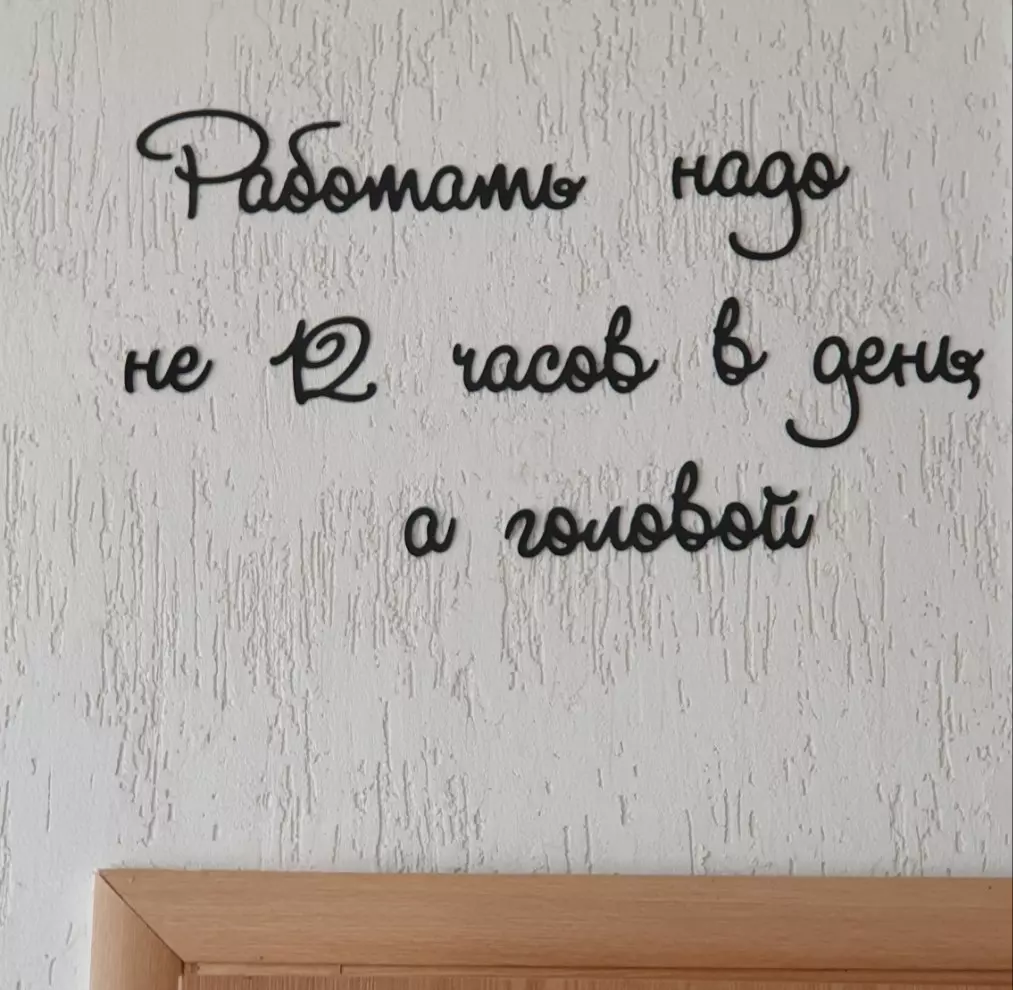 Работать надо
не 12 часов в день,
а головой